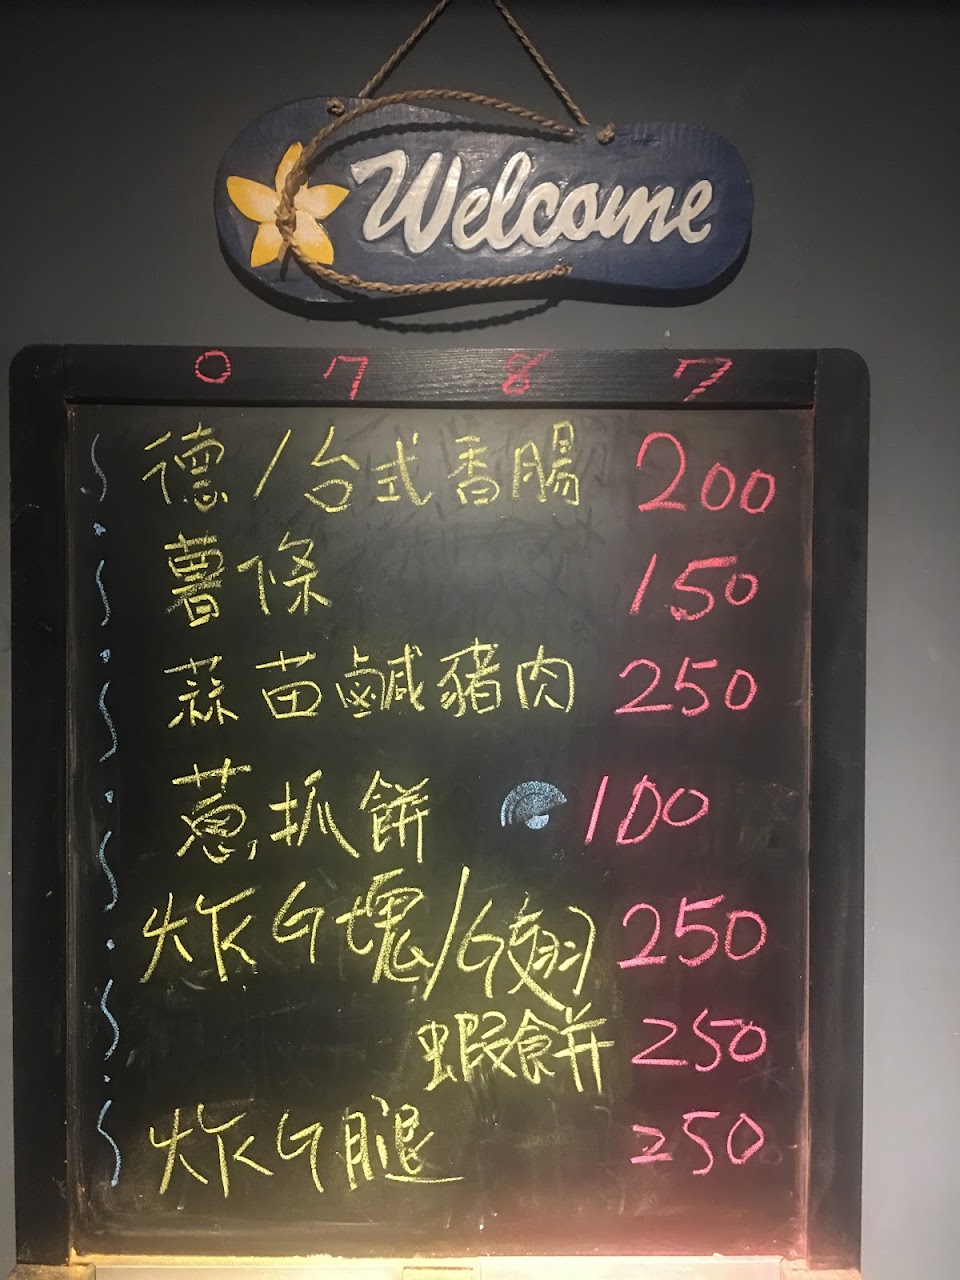 Welcome
0 7 8 7
德/台式香腸 200
薯條 150
蒜苗鹹豬肉 250
蔥抓餅 100
炸G塊/G翅 250
蝦餅 250
炸G腿 250